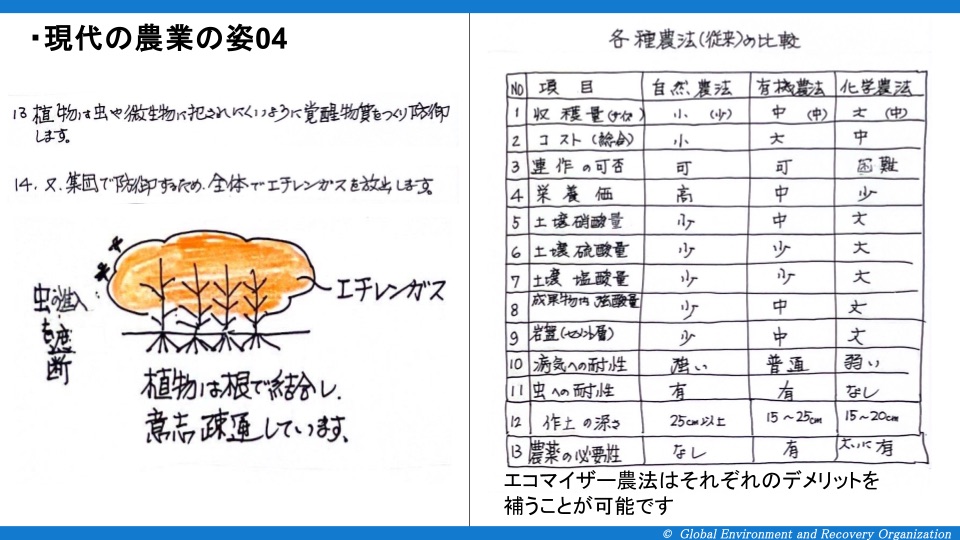 ・現代の農業の姿04
13 植物は虫や微生物に犯されにくいように覚醒物質をつくり防御
します。
14. 又、集団で防御するため、全体でエチレンガスを放出します。
エチレンガス
虫の進入
を遮
断
植物は根で結合し、
意志疎通しています。
各種農法(従来)の比較
NO 項目 自然農法 有機農法 化学農法
1 収穫量(サイズ) 小(少) 中(中) 大(中)
2 コスト(総合) 小 大 中
3 連作の可否 可 可 困難
4 栄養価 高 中 少
5 土壌硝酸量 少 中 大
6 土壌硫酸量 少 少 大
7 土壌塩酸量 少 少 大
8 成果物内 硝酸量 少 中 大
9 岩盤(セメント層) 少 中 大
10 病気への耐性 強い 普通 弱い
11 虫への耐性 有 有 なし
12 作土の深さ 25cm以上 15～25cm 15～20cm
13 農薬の必要性 なし 有 大いに有
エコマイザー農法はそれぞれのデメリットを
補うことが可能です
© Global Environment and Recovery Organization